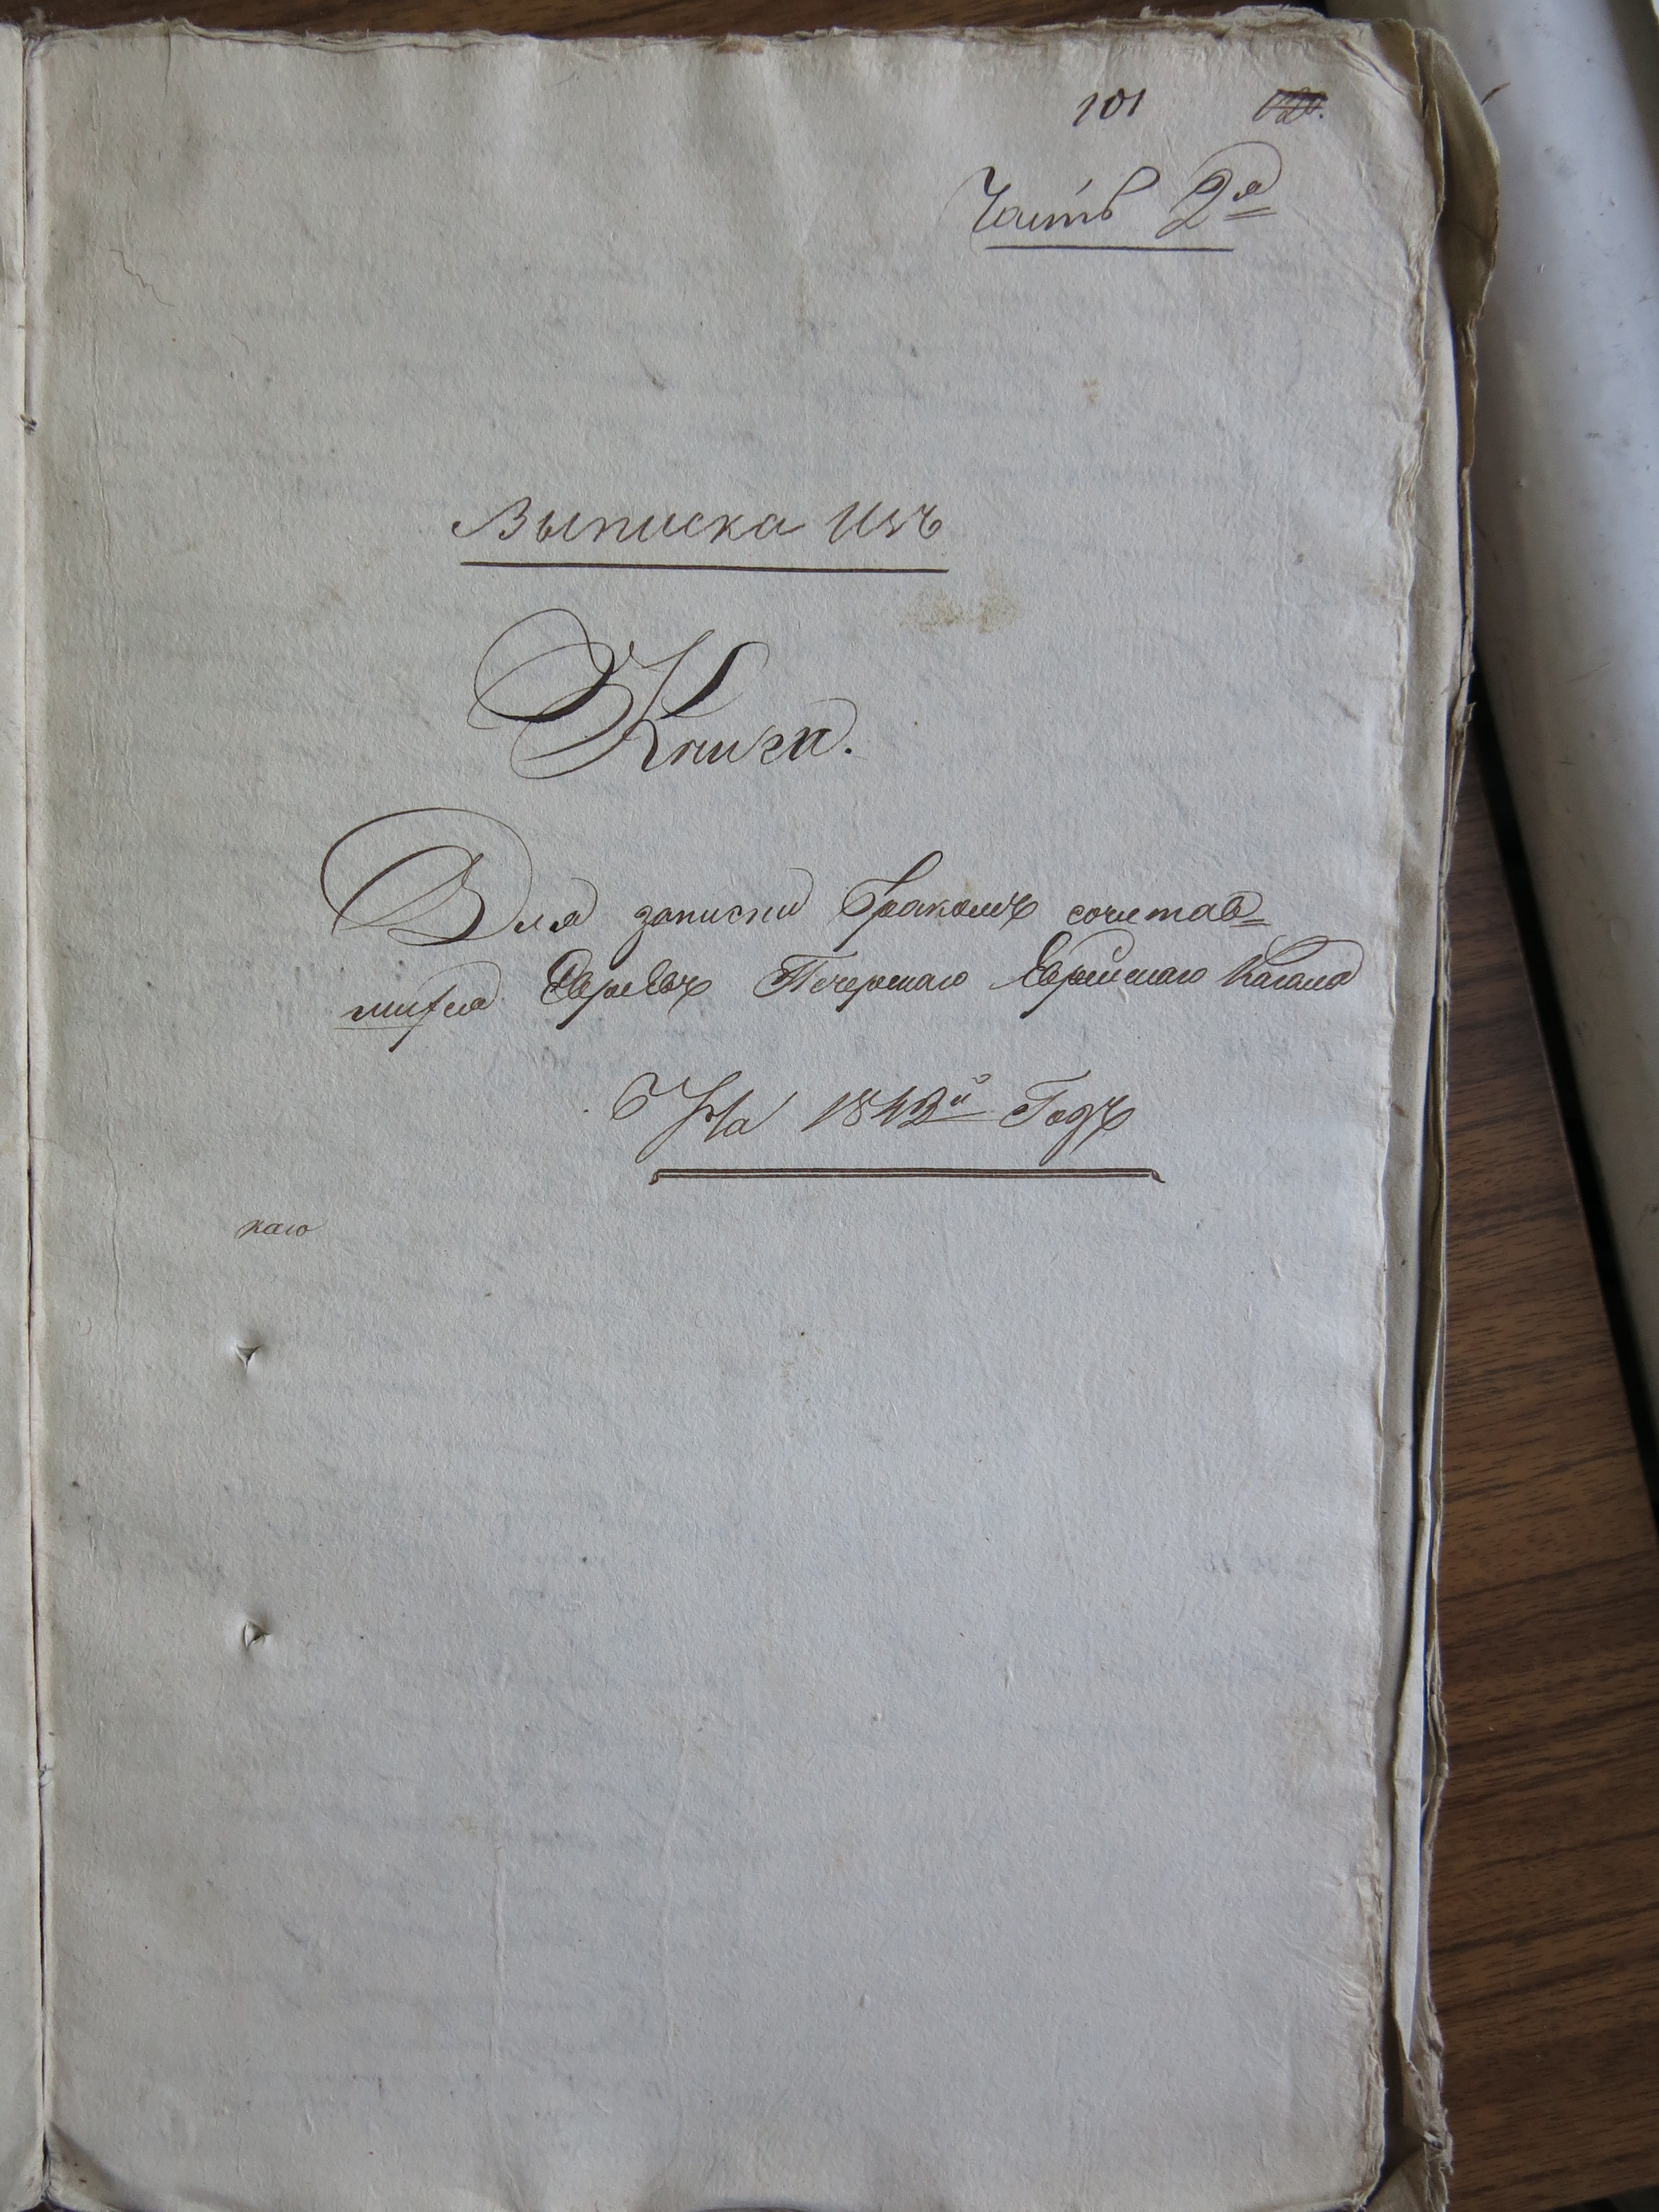 101
Часть 2я
Выписка изъ
Книга.
Для записки бракомъ сочетав=
шихся Евреевъ Печерскаго Еврейскаго Кагала
На 1843й Годъ
каго